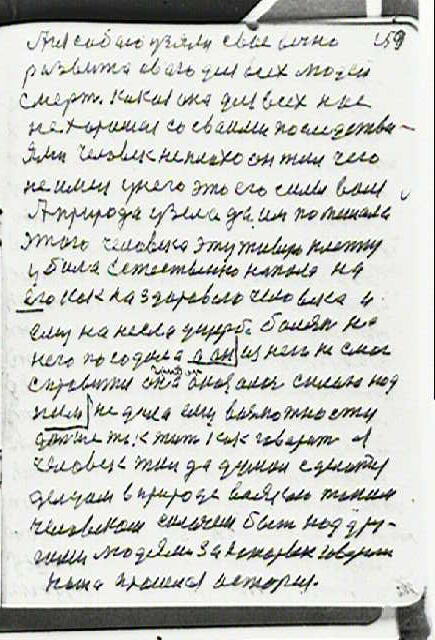 Для собаго взяли свое вечно 159
развитаго ваго для всех людей
смерт. Какая она для всех нас
не хорошая со своими последства-
ями Человек неплохо он жил чего
не имел у него это его сила воля
А природа взела да им помешала
этого человека эту живую плотту
убила Естественно напала на
его как на здорового человека и
ему на несла ущерб. болян на
него посодила а он из нею не смог
справится она оказалас силою над
ним не дала ему возможносту
дальше т. к жит Как говорят и
человек жил да думал с
делцом в природе взял таким
человеком силачем быт над дру-
гими людями За которых говорит
наша прошлая история.